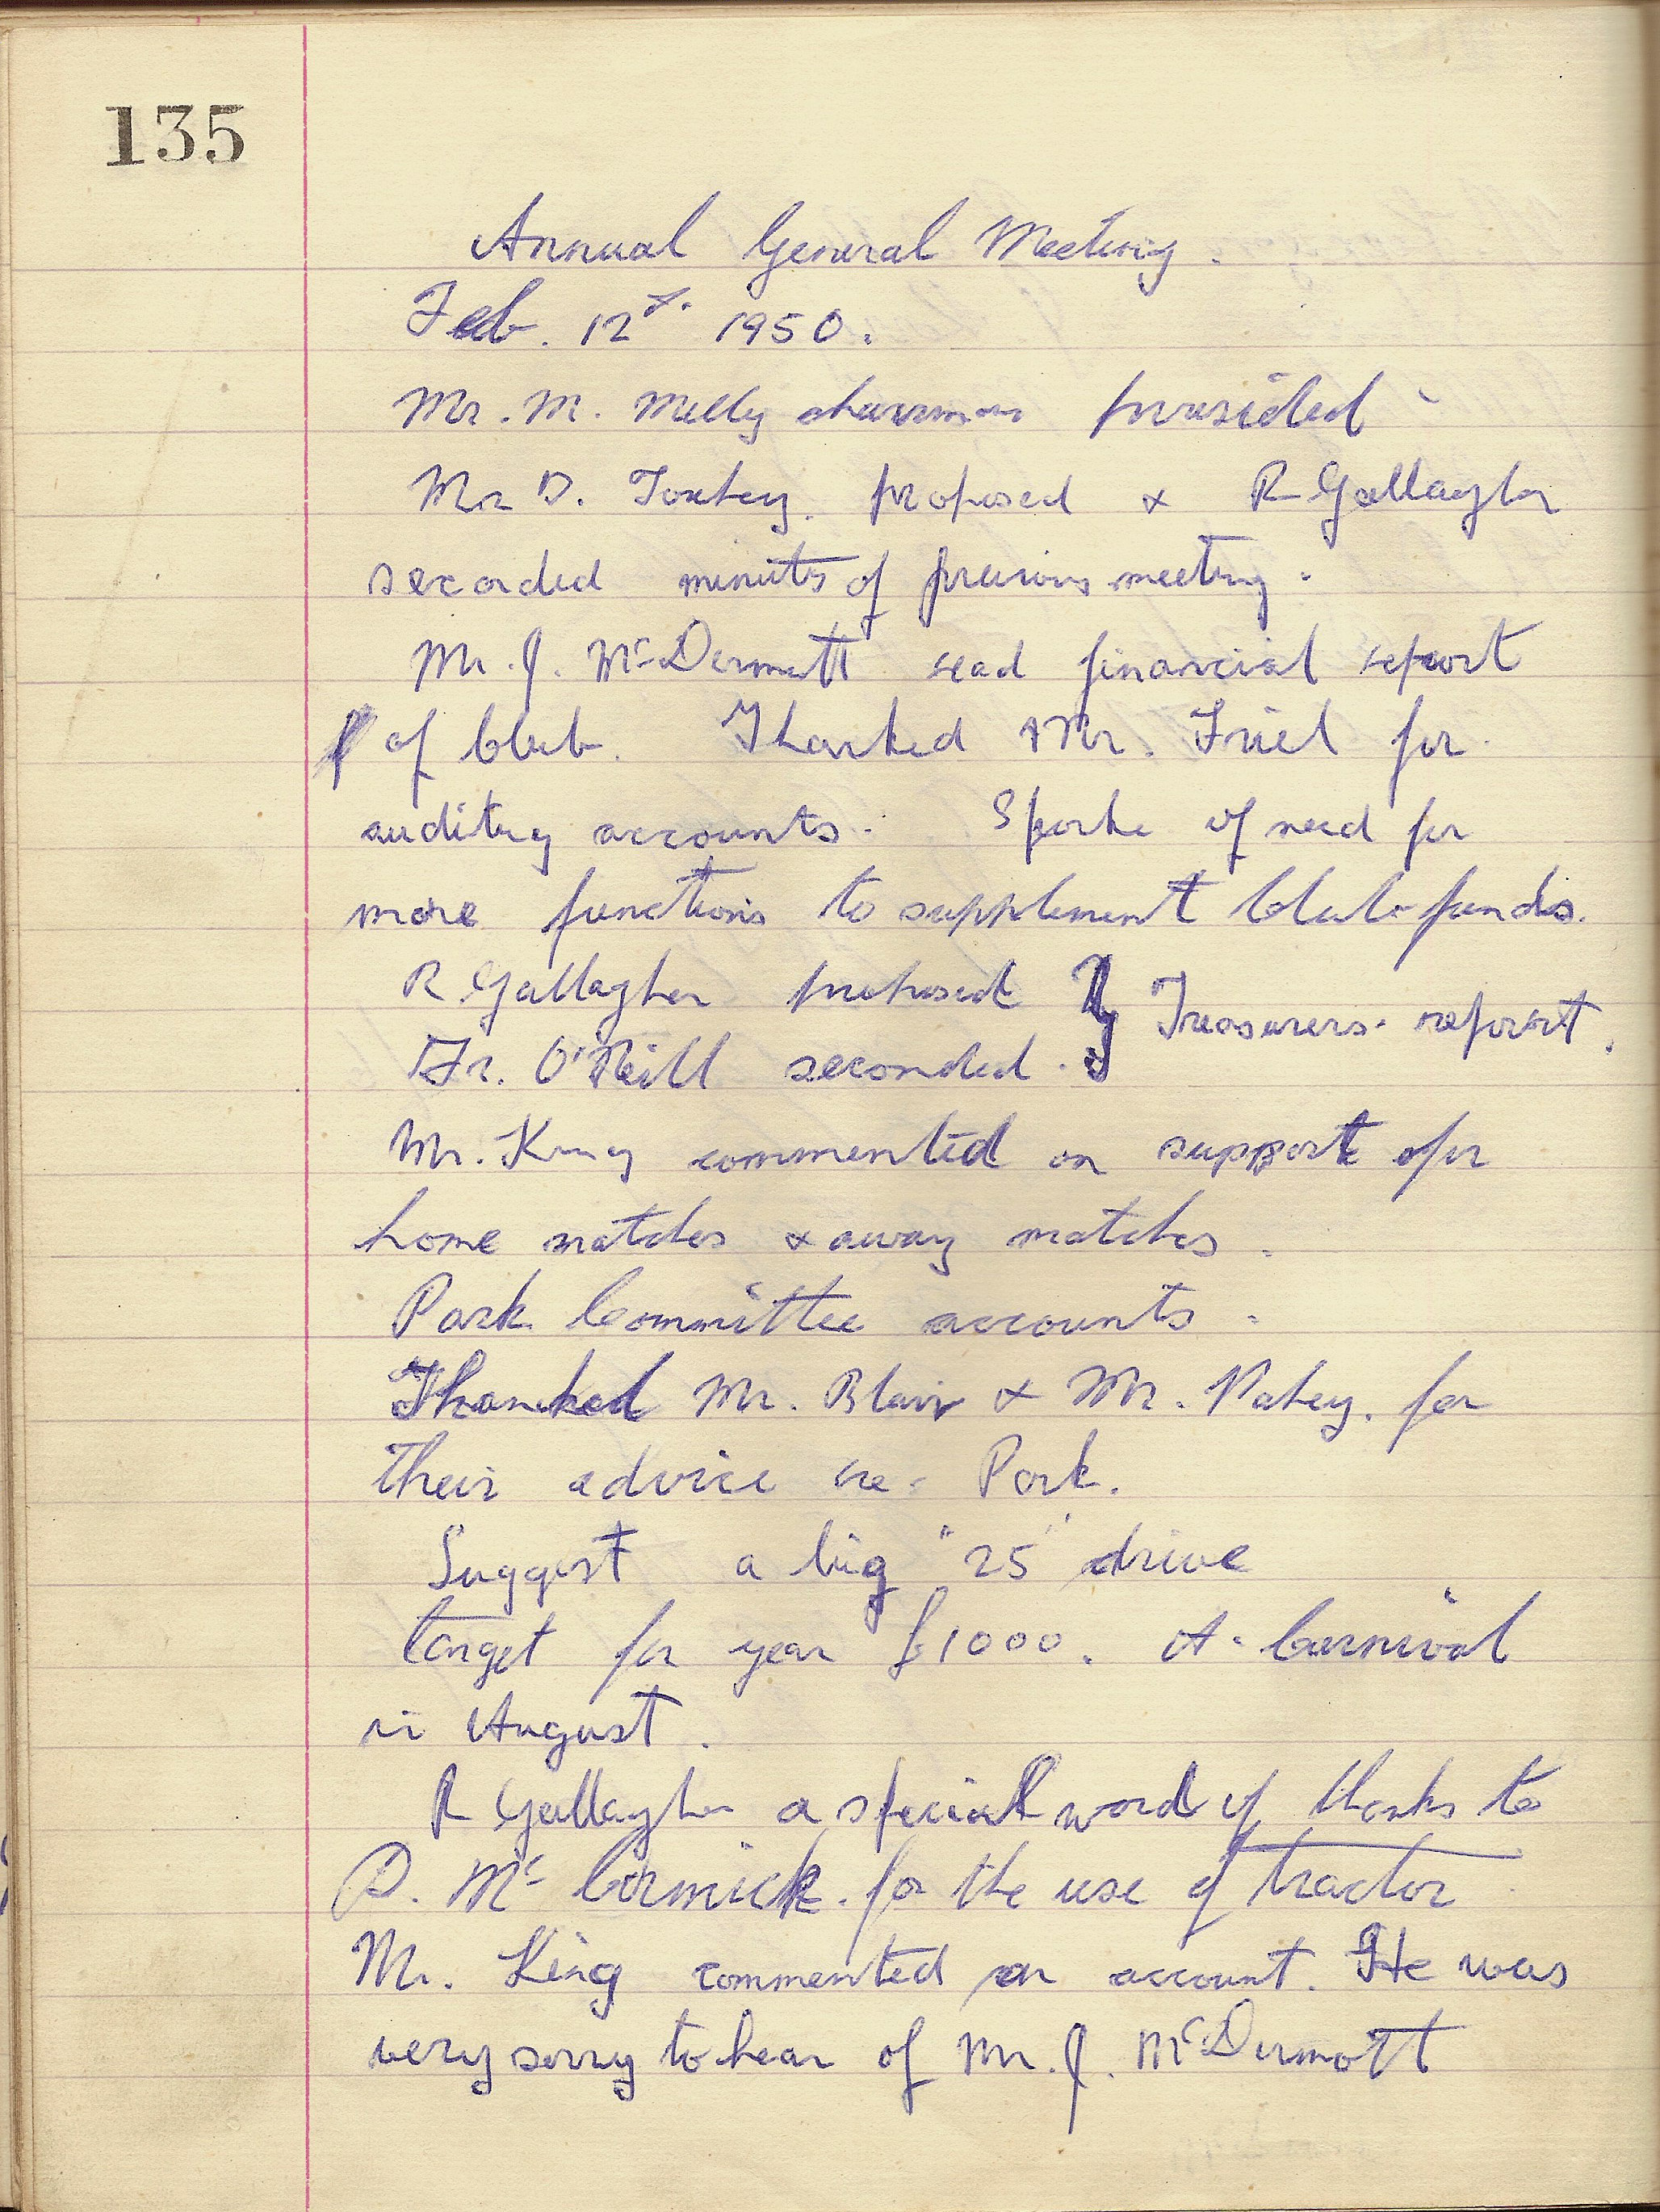 135
Annual General Meeting.
Feb. 12th 1950.
Mr. M. Melly chairman presided
Mr D. Toxhey. proposed & R Gallagher
seconded minutes of previous meeting.
Mr. J. McDermott read financial report
of Club. Thanked Mr. Friel for
auditing accounts. Spoke of need for
more functions to supplement Club funds.
R Gallagher proposed } Treasurers report.
Fr. O'Neill seconded.
Mr. King commented on support for
home matches & away matches.
Park Committee accounts.
Thanked Mr. Blair & Mr. Vahey. for
their advice re. Park.
Suggest a big "25" drive
target for year £1000. A. Carnival
in August.
R Gallagher a special word of thanks to
D. McCormick. for the use of tractor
Mr. King commented on account. He was
very sorry to hear of Mr. J. McDermott